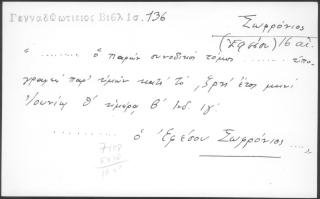 Γενναδ Φωτιειος Βιβλ Ισ. 136
Σωφρόνιος
(Ἐφέσου) 16 αἰ.
" ........ ὁ παρών συνοδικὸς τόμος ....... ὑπο-
γραφεὶς παρ' ἡμῶν κατὰ τὸ ͵ζρη' ἔτος μηνὶ
Ἰουνίῳ θ' ἡμέρᾳ β' Ἰνδ ιγ'
......... ὁ Ἐφέσου Σωφρόνιος ....."
7108
5508